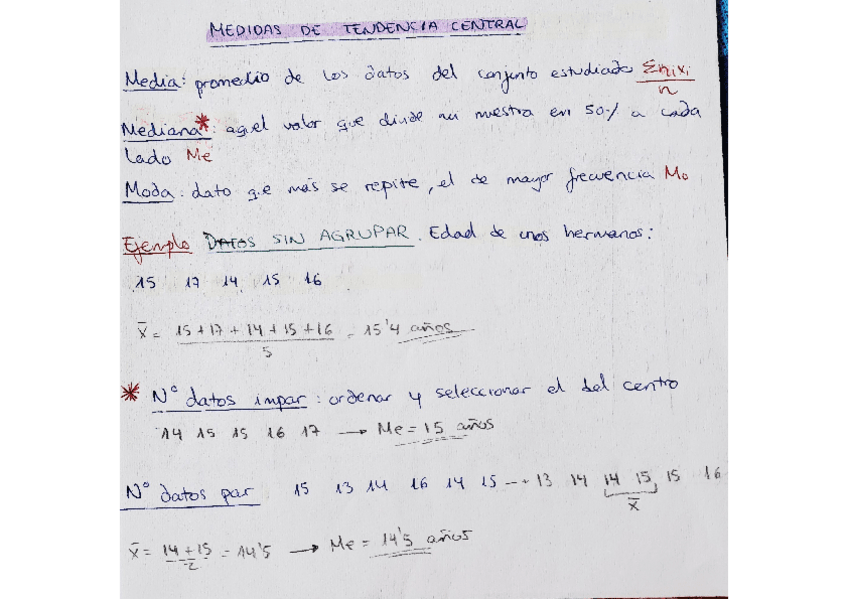 MEDIDAS DE TENDENCIA CENTRAL
Media: promedio de los datos del conjunto estudiado Σnixi/n
Mediana*: aquel valor que divide mi muestra en 50% a cada
lado Me
Moda: dato que más se repite, el de mayor frecuencia Mo
Ejemplo DATOS SIN AGRUPAR. Edad de unos hermanos:
15 17 14 15 16
x̄ = 15+17+14+15+16/5 = 15'4 años
* Nº datos impar: ordenar y seleccionar el del centro
14 15 15 16 17 → Me = 15 años
Nº datos par 15 13 14 16 14 15 → 13 14 14 15 15 16
x̄
x̄ = 14+15/2 = 14'5 → Me = 14'5 años